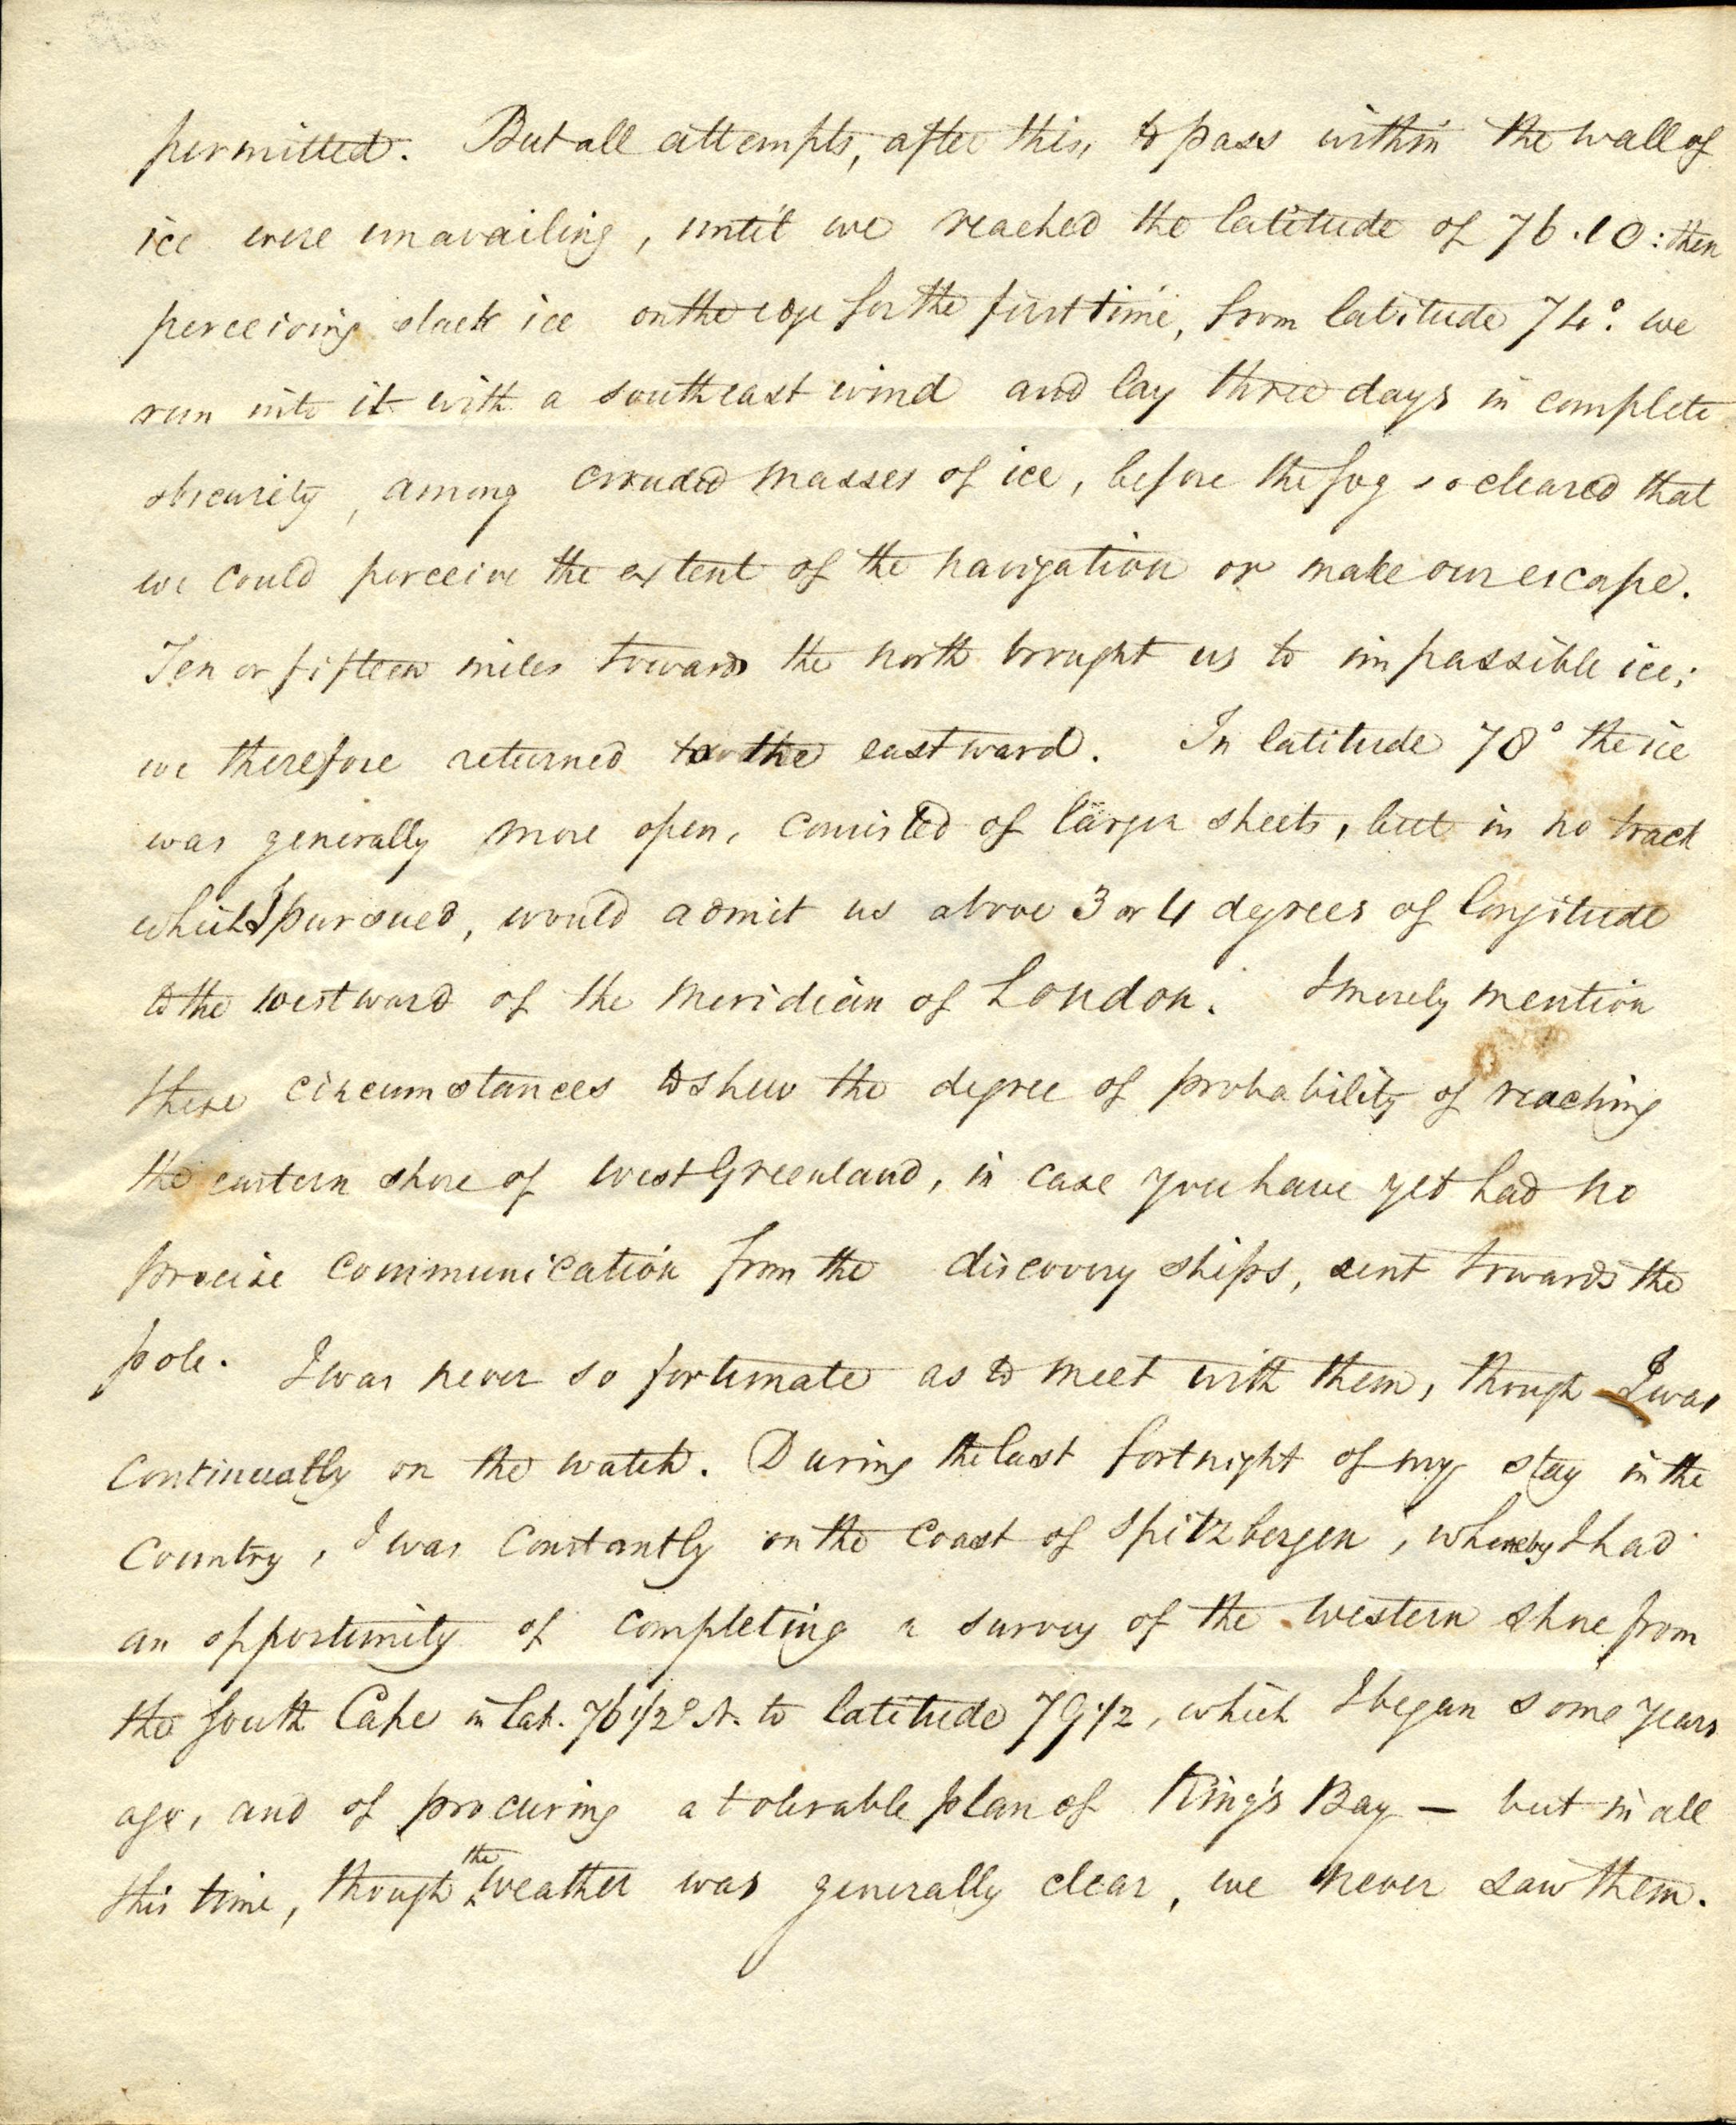 permitted. But all attempts, after this, to pass within the wall of
ice were unavailing, until we reached the latitude of 76.10: then
perceiving slack ice on the edge for the first time, from latitude 74°. we
run into it with a southeast wind and lay three days in complete
obscurity, among crouded masses of ice, before the fog so cleared that
we could perceive the extent of the navigation or make our escape.
Ten or fifteen miles towards the north brought us to impassible ice;
we therefore returned to the eastward. In latitude 78° the ice
was generally more open, consisted of larger sheets, but in no track
which I pursued, would admit us above 3 or 4 degrees of longitude
to the westward of the meridian of London. I merely mention
these circumstances to shew the degree of probability of reaching
the eastern shore of West Greenland, in case you have yet had no
precise communication from the discovery ships, sent towards the
pole. I was never so fortunate as to meet with them, though I was
continually on the watch. During the last fortnight of my stay in the
Country, I was constantly on the coast of Spitzbergen, whereby I had
an opportunity of completing a survey of the western shore from
the South Cape in lat. 76 1/2° N. to latitude 79 1/2, which I began some years
ago, and of procuring a tolerable plan of King's Bay — but in all
this time, though the weather was generally clear, we never saw them.